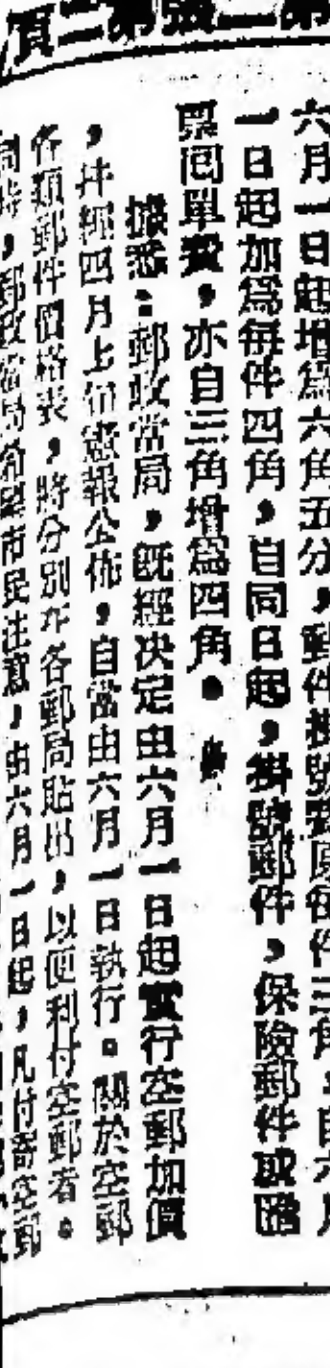 第二張第二頁
六月一日起增爲六角五分，郵件掛號費原每件三角，自六月
一日起加爲每件四角，自同日起，掛號郵件，保險郵件或匯
票回單費，亦自三角增爲四角。
據悉：郵政當局，既經决定由六月一日起實行空郵加價
，并經四月上旬憲報公佈，自當由六月一日執行。關於空郵
各類郵件價格表，將分別在各郵局貼出，以便利付空郵者。
同時，郵政當局希望市民注意，由六月一日起，凡付寄空郵